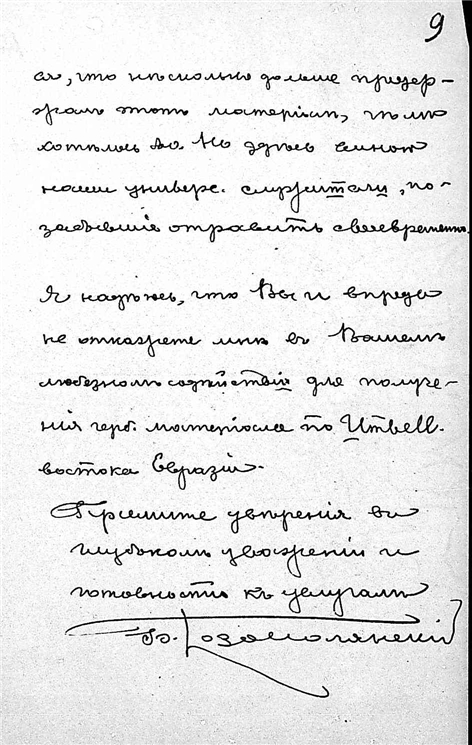 9
ся, что нѣсколько дольше придер-
жалъ этотъ матеріалъ, чѣмъ
хотѣлось бы. Но здѣсь виною
наши универс. служители, по-
забывшіе отравить своевременно.
Я надѣюсь, что Вы и впредь
не откажете мнѣ въ Вашемъ
любезномъ содѣйствіи для получе-
нія герб. матеріала по
востока Евразіи.
Примите увѣренія въ
глубокомъ уваженіи и
готовности къ услугамъ
Б. Козо-Полянскій